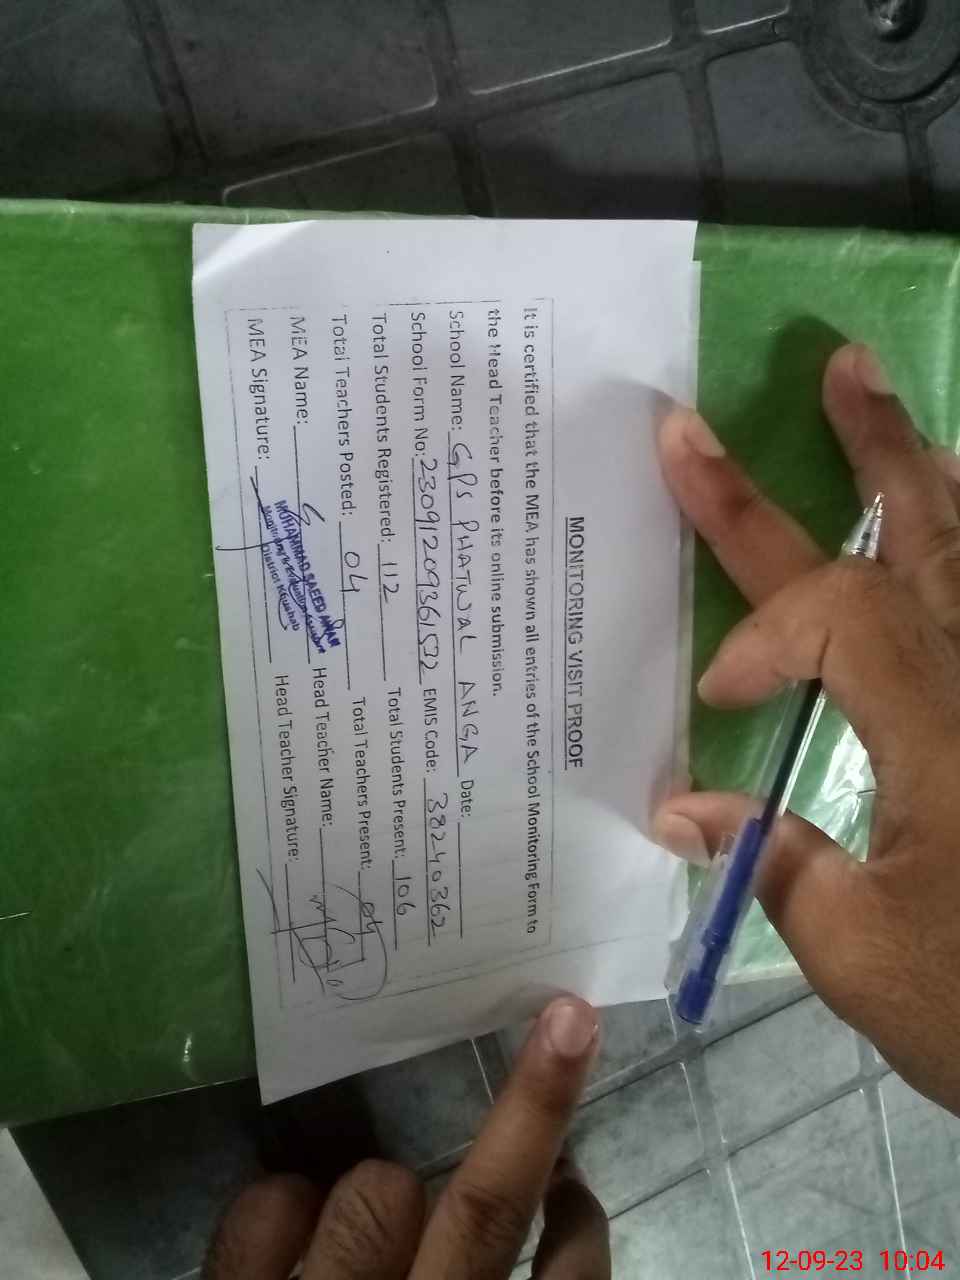 MONITORING VISIT PROOF
It is certified that the MEA has shown all entries of the School Monitoring Form to
the Head Teacher before its online submission.
School Name: GPS PHATWAL ANGA Date:
School Form No: 23091209361572 EMIS Code: 38240362
Total Students Registered: 112 Total Students Present: 106
Total Teachers Posted: 04 Total Teachers Present: 04
MEA Name: Head Teacher Name:
MUHAMMAD SAEED AWAN
Monitoring & Evaluation Assistant
District Khushab
MEA Signature: Head Teacher Signature:
12-09-23 10:04